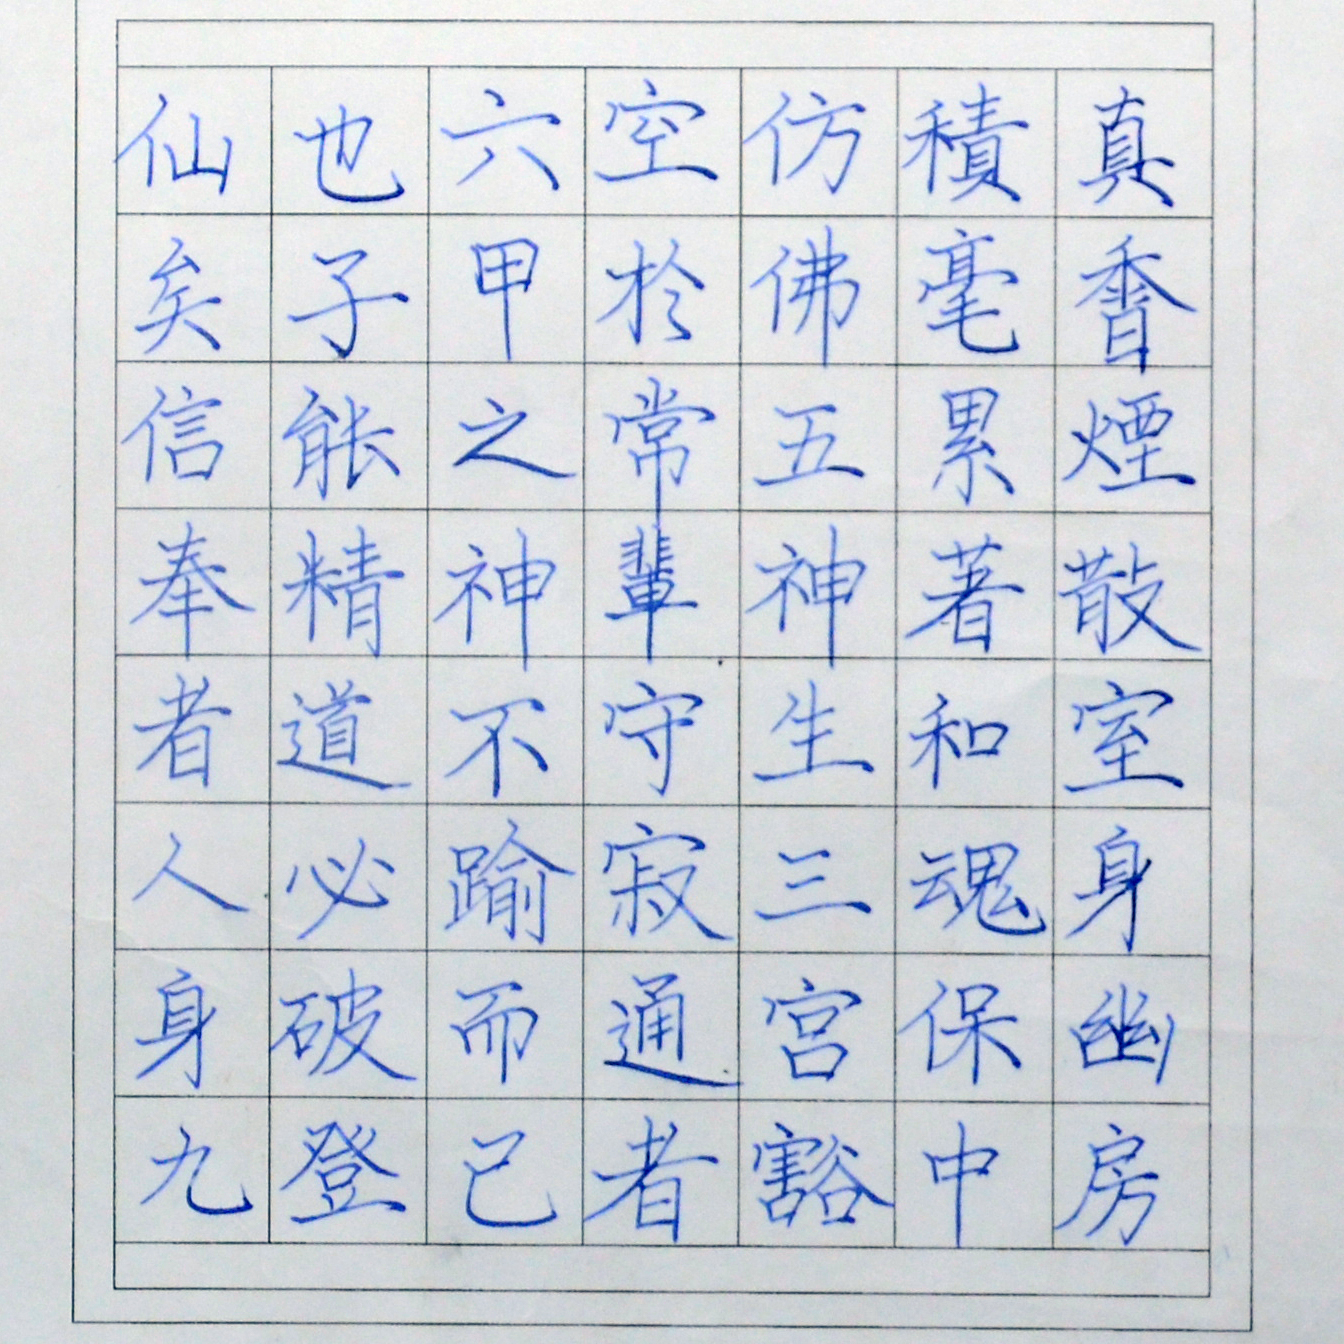 真香煙散室身幽房
積毫累著和魂保中
仿佛五神生三宮豁
空於常輩守寂通者
六甲之神不踰而已
也子能精道必破登
仙矣信奉者人身九